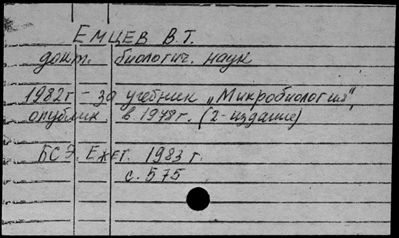 ЕМЦЕВ В.Т.
докт. биологич. наук
1982г - за учебник „Микробиология“,
опублик. в 1978г. (2-издание)
БСЭ. Ежег. 1983 г.
с. 575